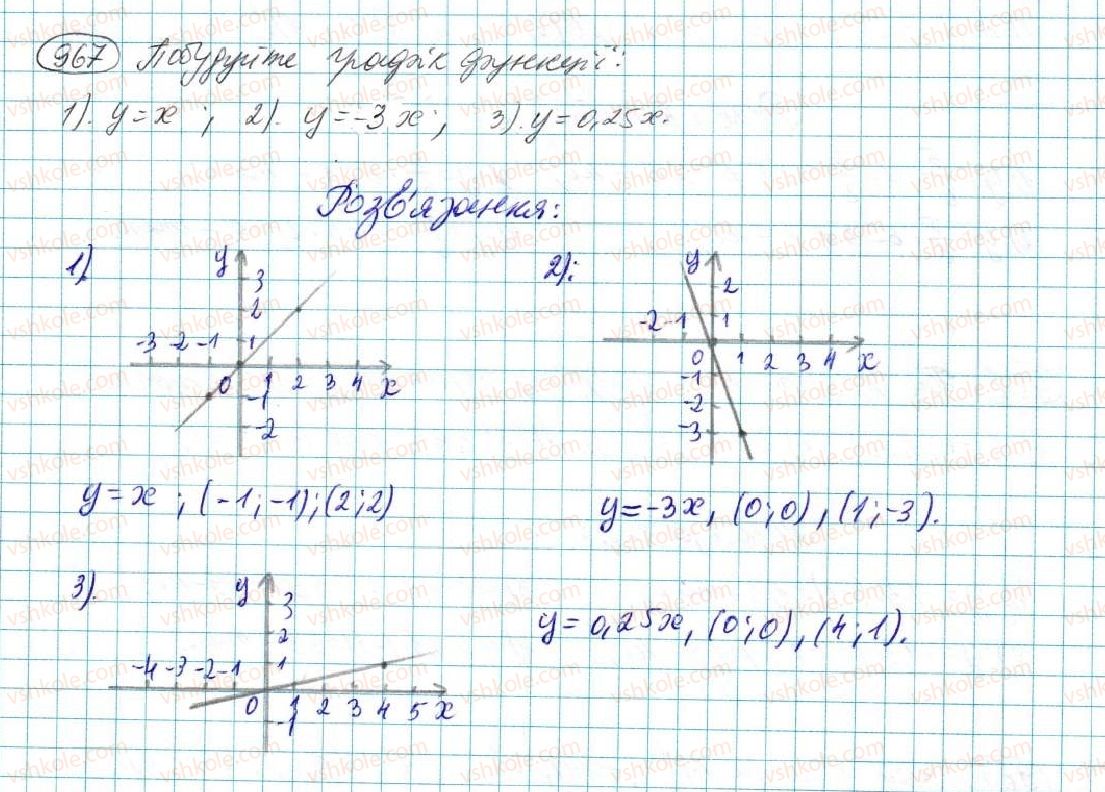 967 Побудуйте графік функції:
1). y = x ; 2). y = -3x ; 3). y = 0,25x.
Розв'язання:
1).
y
3
2
1
-3 -2 -1
0 1 2 3 4 x
-1
-2
y = x ; (-1; -1); (2; 2)
2):
y
2
1
-2 -1
0 1 2 3 4 x
-1
-2
-3
y = -3x, (0; 0), (1; -3).
3).
y
3
2
1
-4 -3 -2 -1
0 1 2 3 4 5 x
-1
y = 0,25x, (0; 0), (4; 1).
vshkole.com